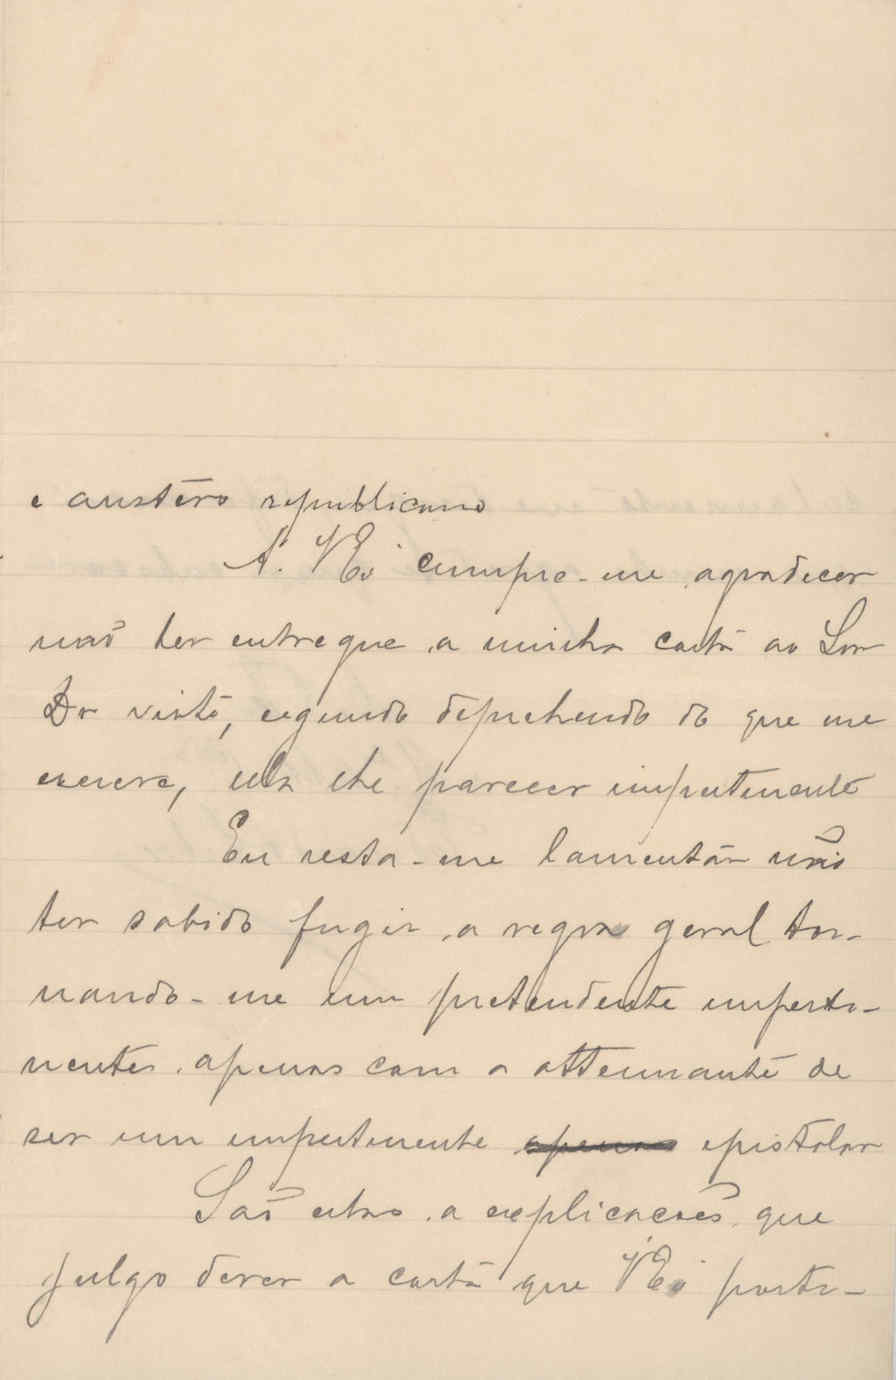 e austéro republicano
A. V Exª cumpre-me agradecer
não ter entregue a minha carta ao Snr
Dr visto, segundo deprehendo do que me
escreve, ella lhe parecer impertinente
Eu resta-me lamentar não
ter sabido fugir a regra geral tor-
nando-me um pretendente imperti-
nente, apenas com a attenuante de
ser um impertinente apenas epistolar
São estas a explicacões que
julgo dever a carta que V Exª